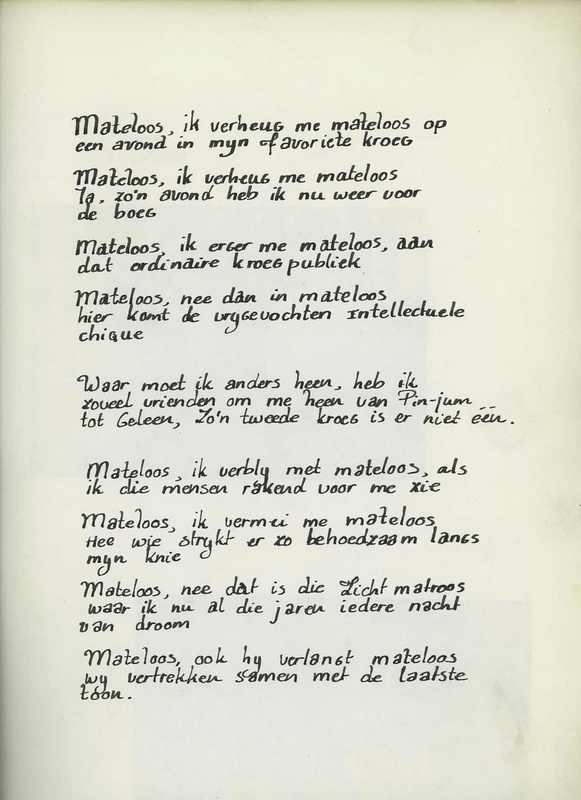 Mateloos, ik verheug me mateloos op
een avond in mijn favoriete kroeg
Mateloos, ik verheug me mateloos
Ja, zo'n avond heb ik nu weer voor
de boeg
Mateloos, ik erger me mateloos, aan
dat ordinaire kroegpubliek
Mateloos, nee dan in mateloos
hier komt de vrijgevochten intellectuele
chique
Waar moet ik anders heen, heb ik
zoveel vrienden om me heen van Pin-jum
tot Geleen, Zo'n tweede kroeg is er niet één.
Mateloos, ik verblij met mateloos, als
ik die mensen rakend voor me zie
Mateloos, ik vermei me mateloos
Hee wie strijkt er zo behoedzaam langs
mijn knie
Mateloos, nee dat is die Lichtmatroos
waar ik nu al die jaren iedere nacht
van droom
Mateloos, ook hij verlangt mateloos
wij vertrekken samen met de laatste
toon.